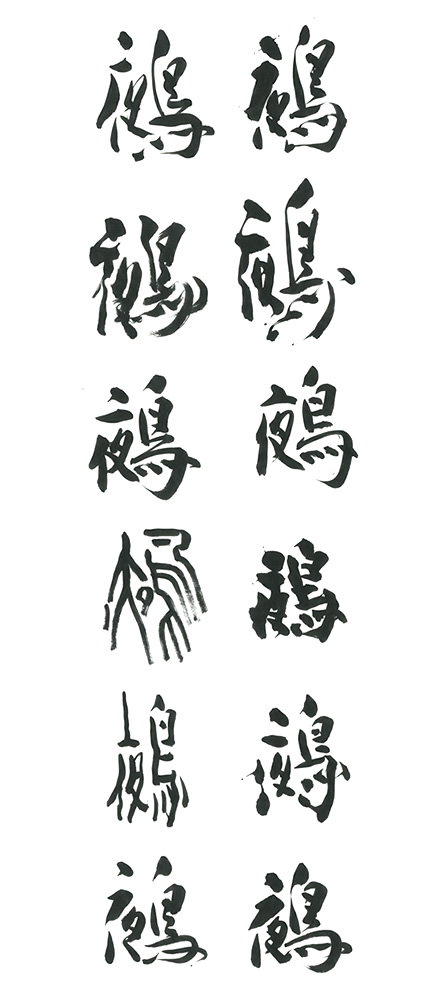 鵺 鵺
鵺 鵺
鵺 鵺
鵺 鵺
鵺 鵺
鵺 鵺